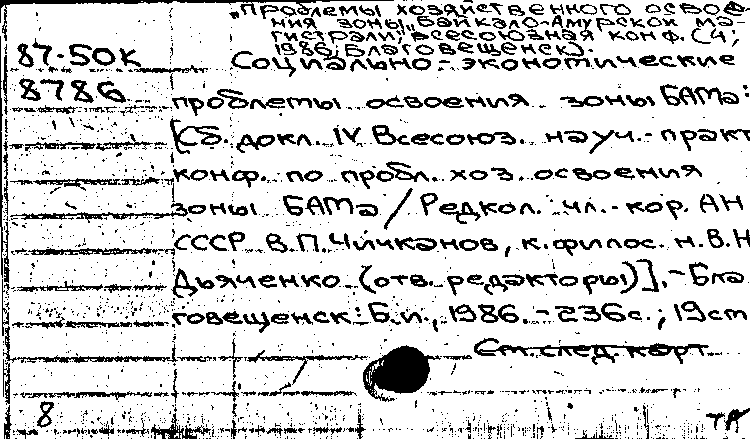 „Проблемы хозяйственного освое-
ния зоны „Байкало-Амурской ма-
гистрали", всесоюзная конф. (4;
1986; Благовещенск).
87-50К Социально-экономические
8786 проблемы освоения зоны БАМа:
[Сб. докл. IV Всесоюз. науч.-практ
конф. по пробл. хоз. освоения
зоны БАМа / Редкол.: чл.-кор. АН
СССР В.П. Чичканов, к. филос. н. В.Н
Дьяченко (отв. редакторы)]. - Бла
говещенск: Б.и., 1986. - 236с.; 19см
См. след. карт.
8